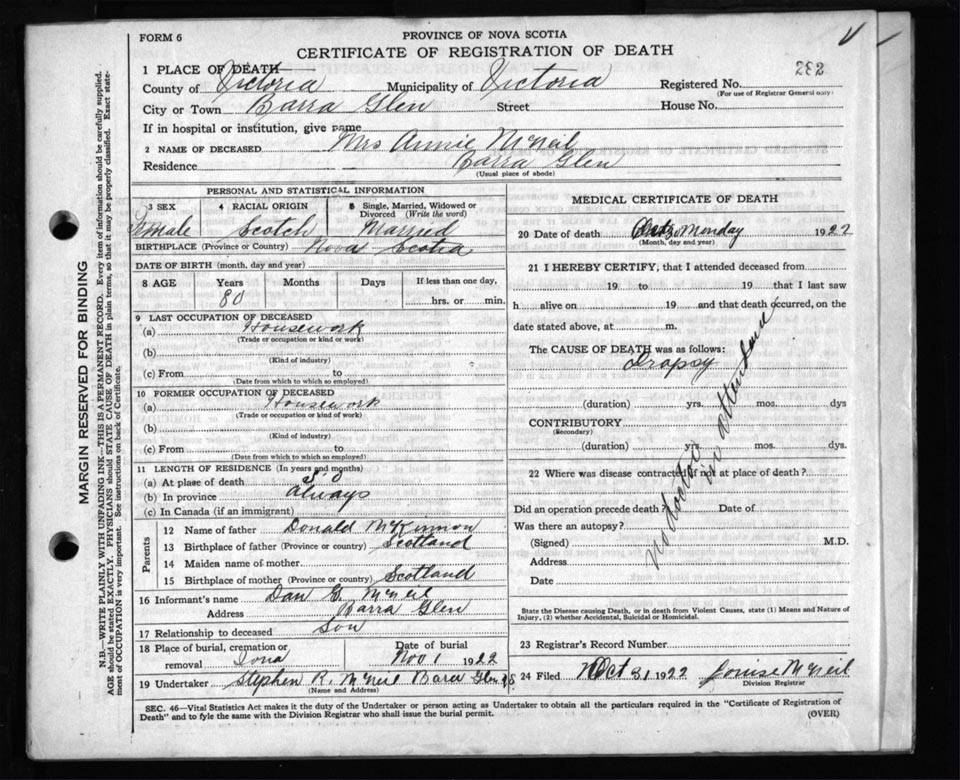 FORM 6
PROVINCE OF NOVA SCOTIA
CERTIFICATE OF REGISTRATION OF DEATH
1 PLACE OF DEATH
County of Victoria Municipality of Victoria Registered No. 282
(For use of Registrar General only)
City or Town Barra Glen Street House No.
If in hospital or institution, give name
2 NAME OF DECEASED Mrs Annie McNeil
Residence Barra Glen
(Usual place of abode)
MARGIN RESERVED FOR BINDING
N.B.—WRITE PLAINLY WITH UNFADING INK—THIS IS A PERMANENT RECORD. Every item of information should be carefully supplied.
AGE should be stated EXACTLY. PHYSICIANS should STATE CAUSE OF DEATH in plain terms, so that it may be properly classified. Exact state-
ment of OCCUPATION is very important. See instructions on back of Certificate.
PERSONAL AND STATISTICAL INFORMATION
3 SEX 4 RACIAL ORIGIN 5 Single, Married, Widowed or
Divorced (Write the word)
Female Scotch Married
BIRTHPLACE (Province or Country) Nova Scotia
DATE OF BIRTH (month, day and year)
8 AGE Years Months Days If less than one day,
80 hrs. or min.
9 LAST OCCUPATION OF DECEASED
(a) Housework
(Trade or occupation or kind or work)
(b)
(Kind of industry)
(c) From to
(Date from which to which so employed)
10 FORMER OCCUPATION OF DECEASED
(a) Housework
(Trade or occupation or kind of work)
(b)
(Kind of industry)
(c) From to
(Date from which to which so employed)
11 LENGTH OF RESIDENCE (In years and months)
(a) At place of death 50
(b) In province always
(c) In Canada (if an immigrant)
Parents
12 Name of father Donald McKinnon
13 Birthplace of father (Province or country) Scotland
14 Maiden name of mother
15 Birthplace of mother (Province or country) Scotland
16 Informant's name Dan G. McNeil
Address Barra Glen
17 Relationship to deceased Son
18 Place of burial, cremation or Date of burial
removal Iona Nov 1 1922
19 Undertaker Stephen R. McNeil Bara Glen NS
(Name and Address)
MEDICAL CERTIFICATE OF DEATH
20 Date of death Monday 1922
(Month, day and year)
21 I HEREBY CERTIFY, that I attended deceased from
19 to 19 that I last saw
h alive on 19 and that death occurred, on the
date stated above, at m.
The CAUSE OF DEATH was as follows:
Dropsy
(duration) yrs. mos. dys
CONTRIBUTORY
(Secondary)
(duration) yrs. mos. dys.
22 Where was disease contracted if not at place of death?
Did an operation precede death? Date of
Was there an autopsy?
(Signed) M.D.
Address
Date
No doctor in attendance
State the Disease causing Death, or in death from Violent Causes, state (1) Means and Nature of
Injury, (2) whether Accidental, Suicidal or Homicidal.
23 Registrar's Record Number
24 Filed Oct 31 1922 Louise McNeil
Division Registrar
SEC. 46—Vital Statistics Act makes it the duty of the Undertaker or person acting as Undertaker to obtain all the particulars required in the "Certificate of Registration of
Death" and to fyle the same with the Division Registrar who shall issue the burial permit.
(OVER)